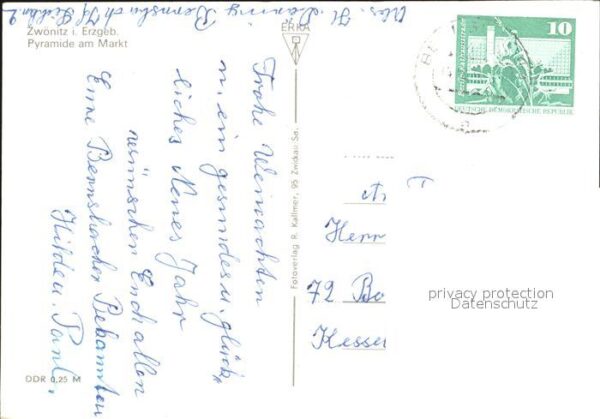 Zwönitz i. Erzgeb.
Pyramide am Markt
Abs. H. Bernsbach
ERKA
10
DEUTSCHE DEMOKRATISCHE REPUBLIK
Frohe Weinachten
u. ein gesundes u. glück,
liches Neues Jahr
wünschen Euch allen
Eure Bernsbacher Bekannten
Fotoverlag R. Kallmer, 95 Zwickau Sa.
Herr
72 Bo
Kesser
privacy protection
Datenschutz
DDR 0,25 M